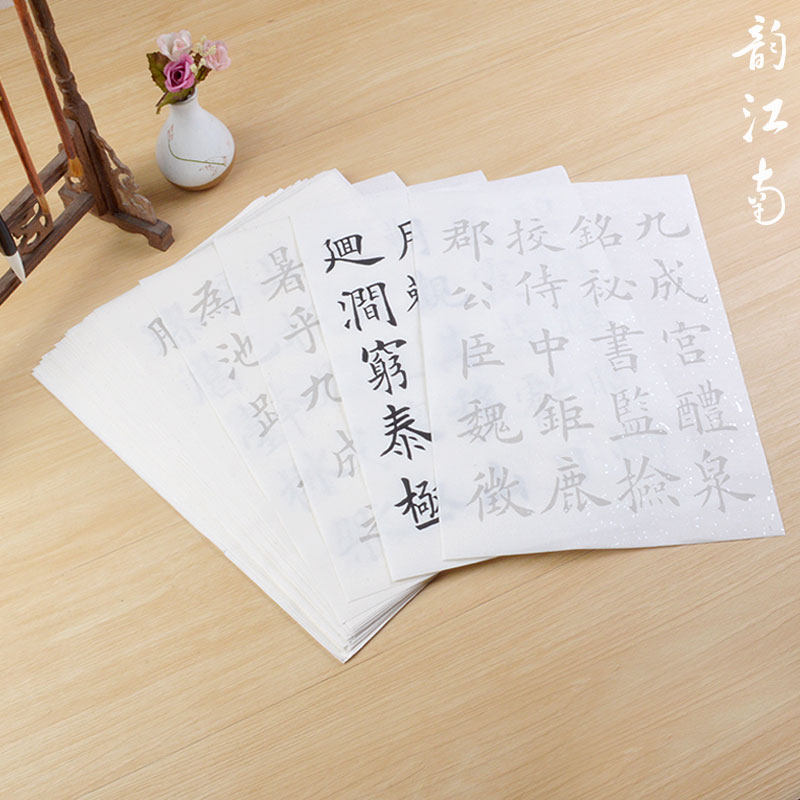 韵江南
九成宮醴泉
銘祕書監撿
挍侍中鉅鹿
郡公臣魏徵
月
廻澗窮泰極
暑乎九成
為池
月